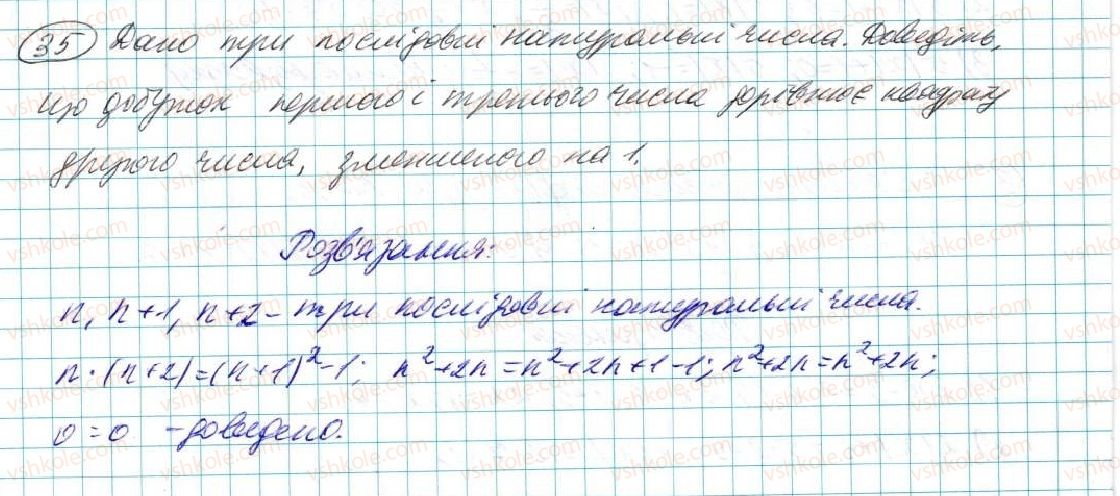 35 Дано три послідовні натуральні числа. Доведіть,
що добуток першого і третього числа дорівнює квадрату
другого числа, зменшеного на 1.
Розв'язання:
n, n+1, n+2 - три послідовні натуральні числа.
n·(n+2)=(n+1)²-1; n²+2n=n²+2n+1-1; n²+2n=n²+2n;
0=0 - доведено.